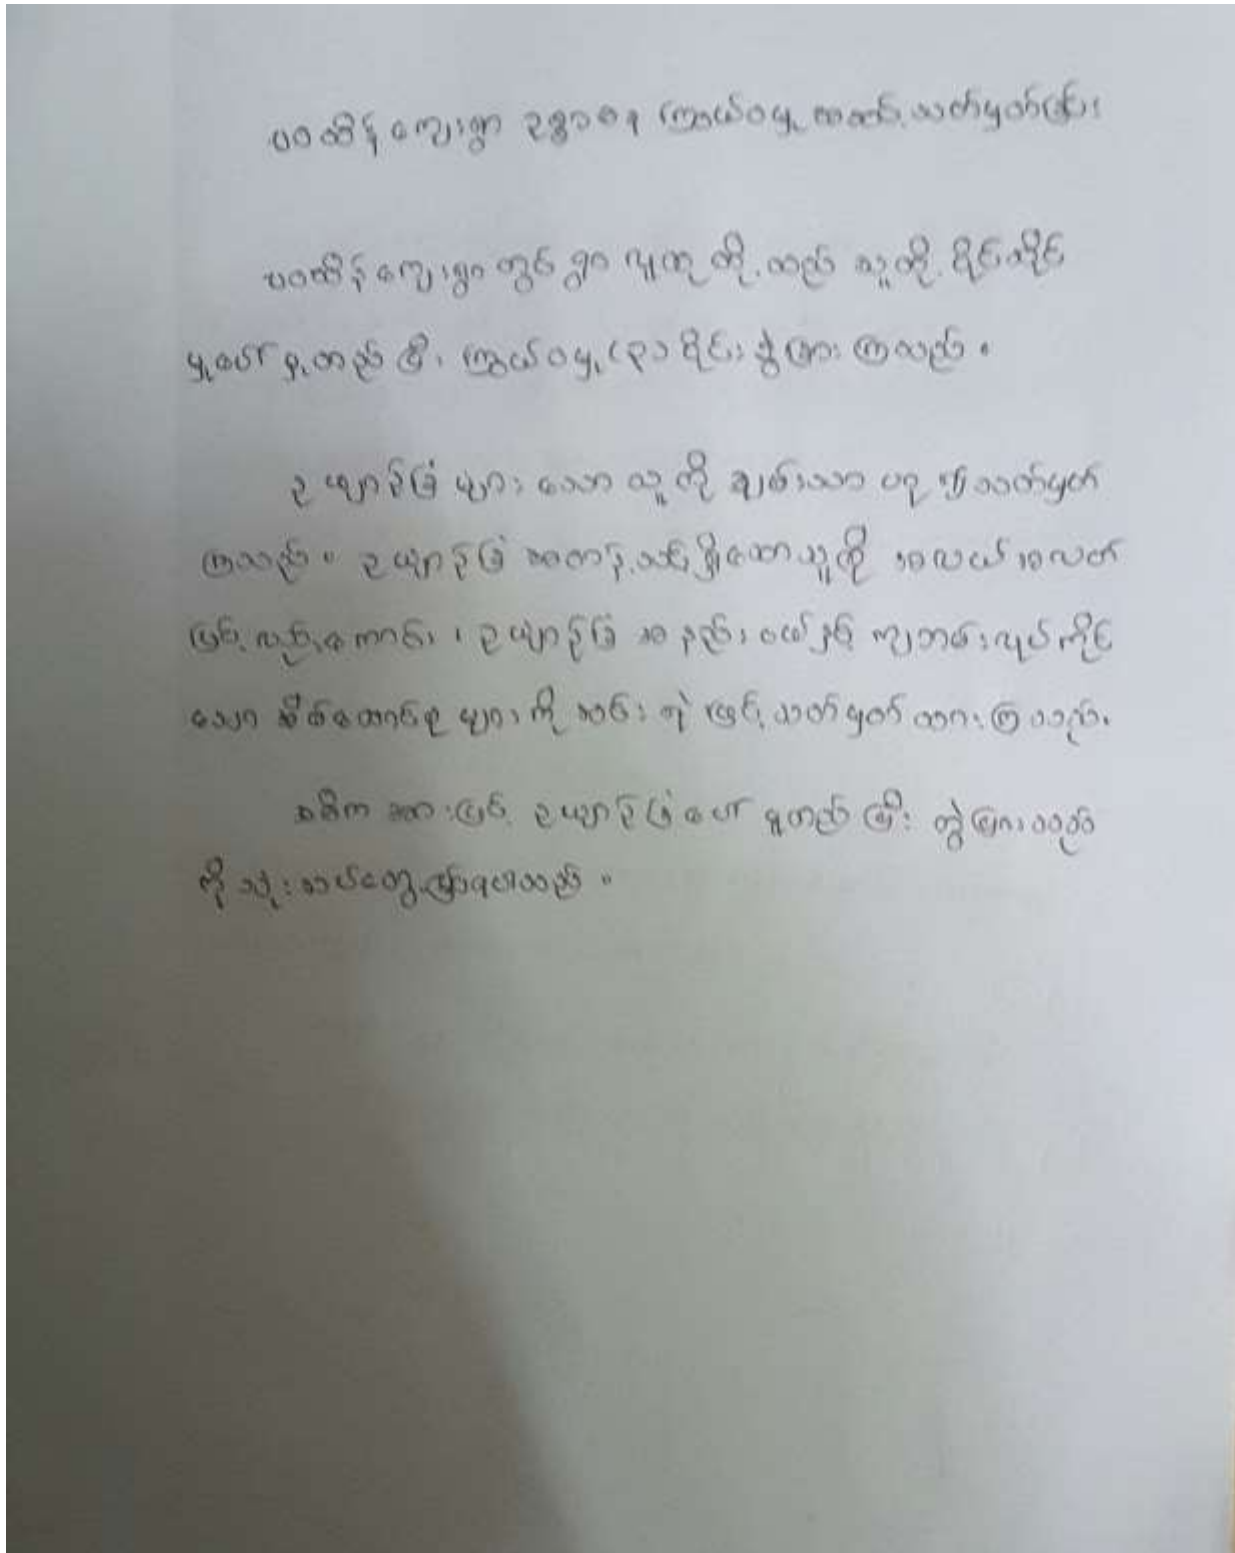 ပထထိန် ကျေးရွာ ဥစ္စာဓန ကြွယ်ဝမှု အဆင့် သတ်မှတ်ခြင်း
ပထထိန် ကျေးရွာ တွင် ရွာ လူထု တို့ သည် သူတို့ ပိုင်ဆိုင်
မှုပေါ် မူတည် ပြီး ကြွယ်ဝမှု ခွဲခြား ကြသည်။
ဥယျာဉ်ခြံ များ သော သူ ကို ချမ်းသာ ဟု ၍ သတ်မှတ်
ကြသည်။ ဥယျာဉ်ခြံ အတန်သင့် ရှိသော သူ ကို အလယ်အလတ်
ဖြင့် လည်းကောင်း ၊ ဥယျာဉ်ခြံ အနည်း ငယ်နှင့် ကျဘမ်း လုပ်ကိုင်
သော အိမ်ထောင်စု များ ကို ဆင်း ရဲ ဖြင့် သတ်မှတ် ထား ကြ သည်။
အဓိက အားဖြင့် ဥယျာဉ်ခြံ ပေါ် မူတည် ပြီး ခွဲခြား သည်
ကို သုံးသပ်တွေ့မြင်ရပါသည် ။